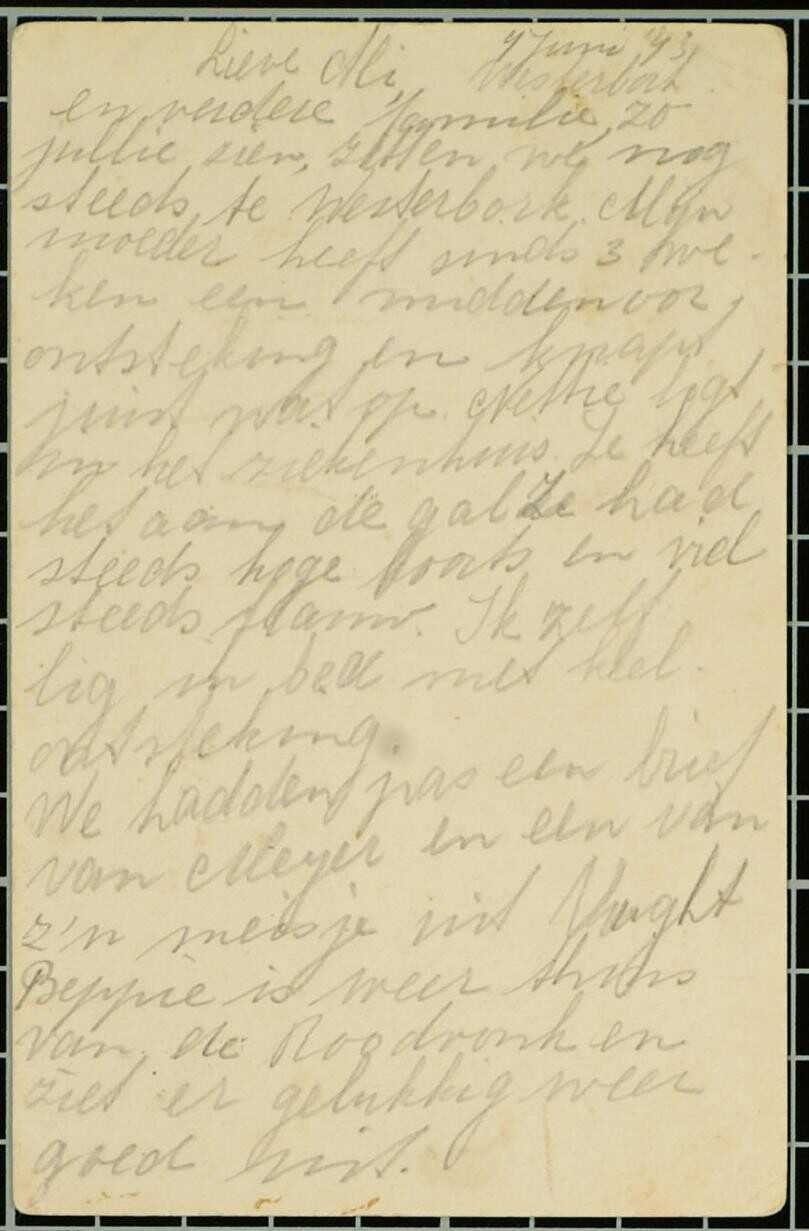 Lieve Ali, 7 Juni '43
Westerbork.
en verdere familie, zo
jullie zien, zitten we nog
steeds te Westerbork. Mijn
moeder heeft sinds 3 we-
ken een middenoor,
ontsteking en knapt
juist wat op. Nettie ligt
in het ziekenhuis. Ze heeft
het aan de gal Ze had
steeds hoge koorts en viel
steeds flauw. Ik zelf
lig in bed met keel-
ontsteking.
We hadden pas een brief
van Meyer en een van
z'n meisje uit Vught
Beppie is weer thuis
van de Roodvonk en
ziet er gelukkig weer
goed uit.